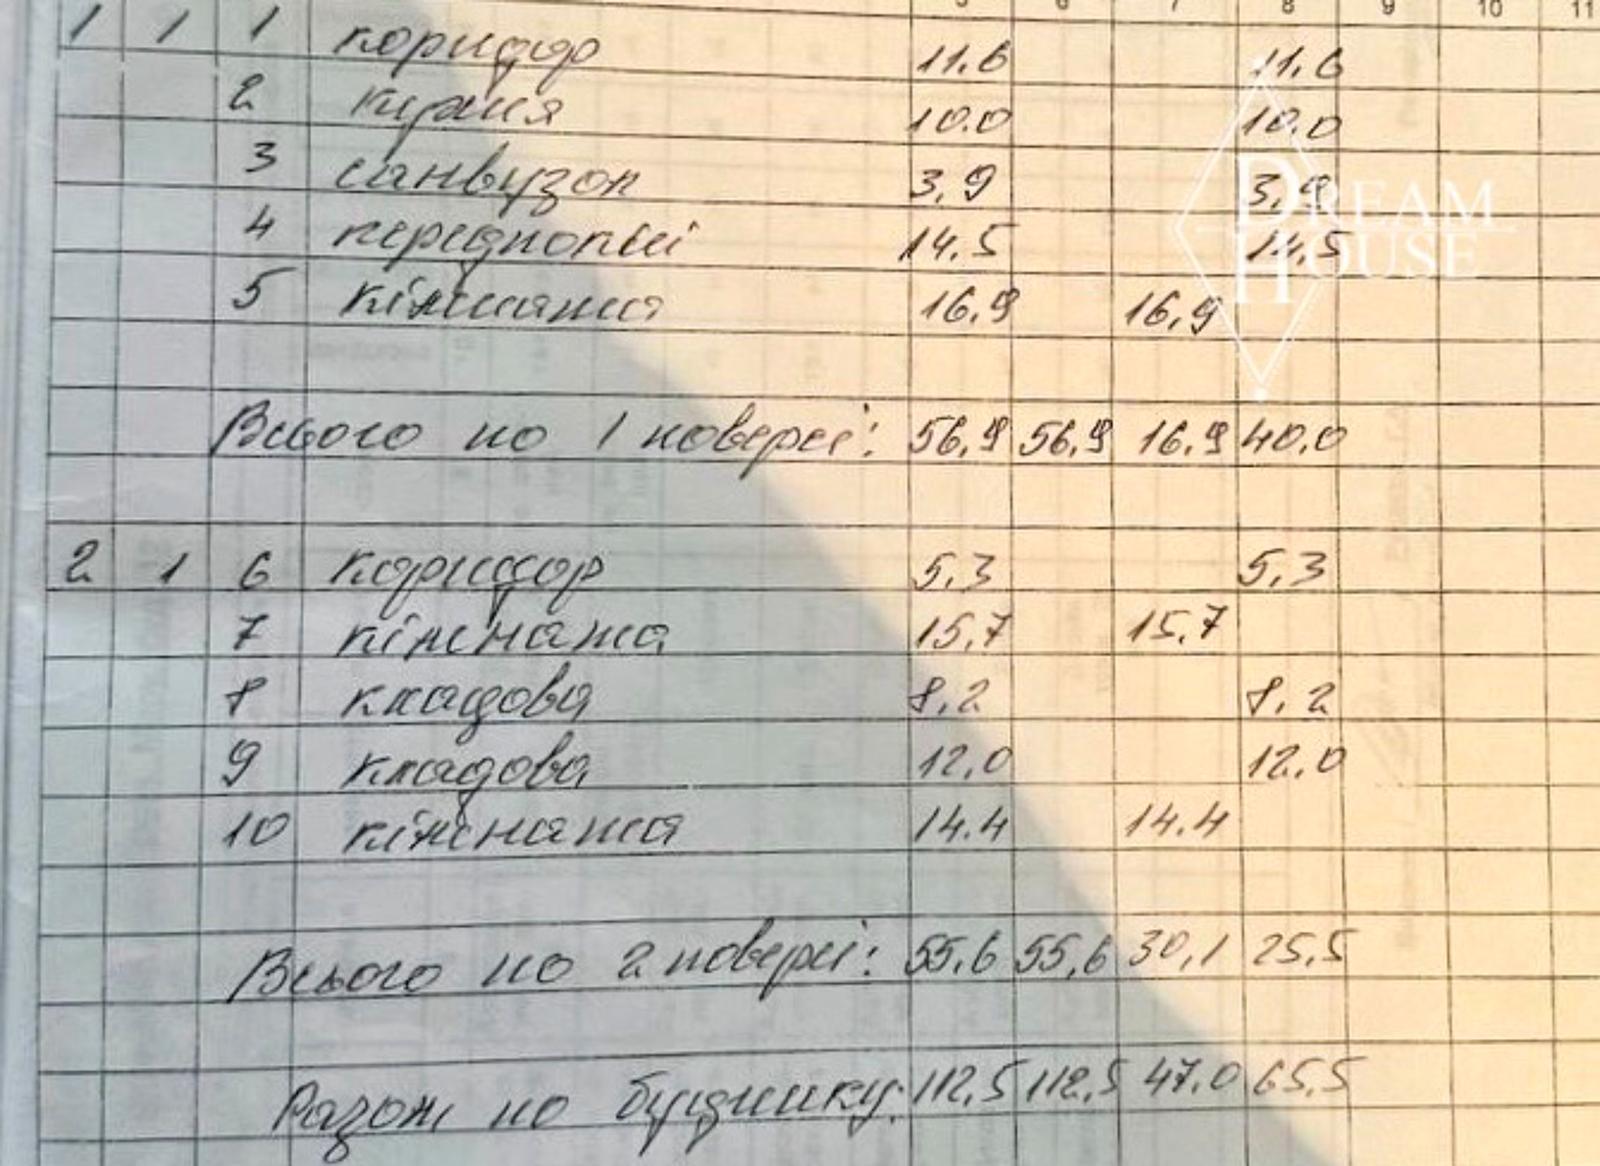 5 6 7 8 9 10 11
1 1 1 коридор 11.6 11.6
2 кухня 10.0 10.0
3 санвузол 3,9 3,9
4 передпокій 14.5 14,5
5 кімната 16.9 16,9
DREAM
HOUSE
Всього по 1 поверсі: 56,9 56,9 16.9 40.0
2 1 6 коридор 5,3 5,3
7 кімната 15,7 15,7
8 кладова 8,2 8,2
9 кладова 12,0 12,0
10 кімната 14.4 14.4
Всього по 2 поверсі: 55,6 55,6 30,1 25,5
Разом по будинку: 112,5 112,5 47.0 65.5